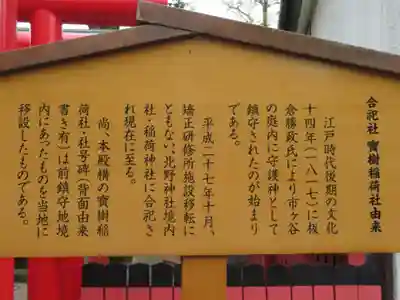 合祀社 寳樹稲荷社由来
江戸時代後期の文化
十四年(一八一七)に板
倉勝政氏により市ヶ谷
の庭内に守護神として
鎮守されたのが始まり
である。
平成二十七年十月、
矯正研修所施設移転に
ともない、北野神社境内
社・稲荷神社に合祀さ
れ現在に至る。
尚、本殿横の寳樹稲
荷社・社号碑(背面由来
書き有)は前鎮守地境
内にあったものを当地に
移設したものである。